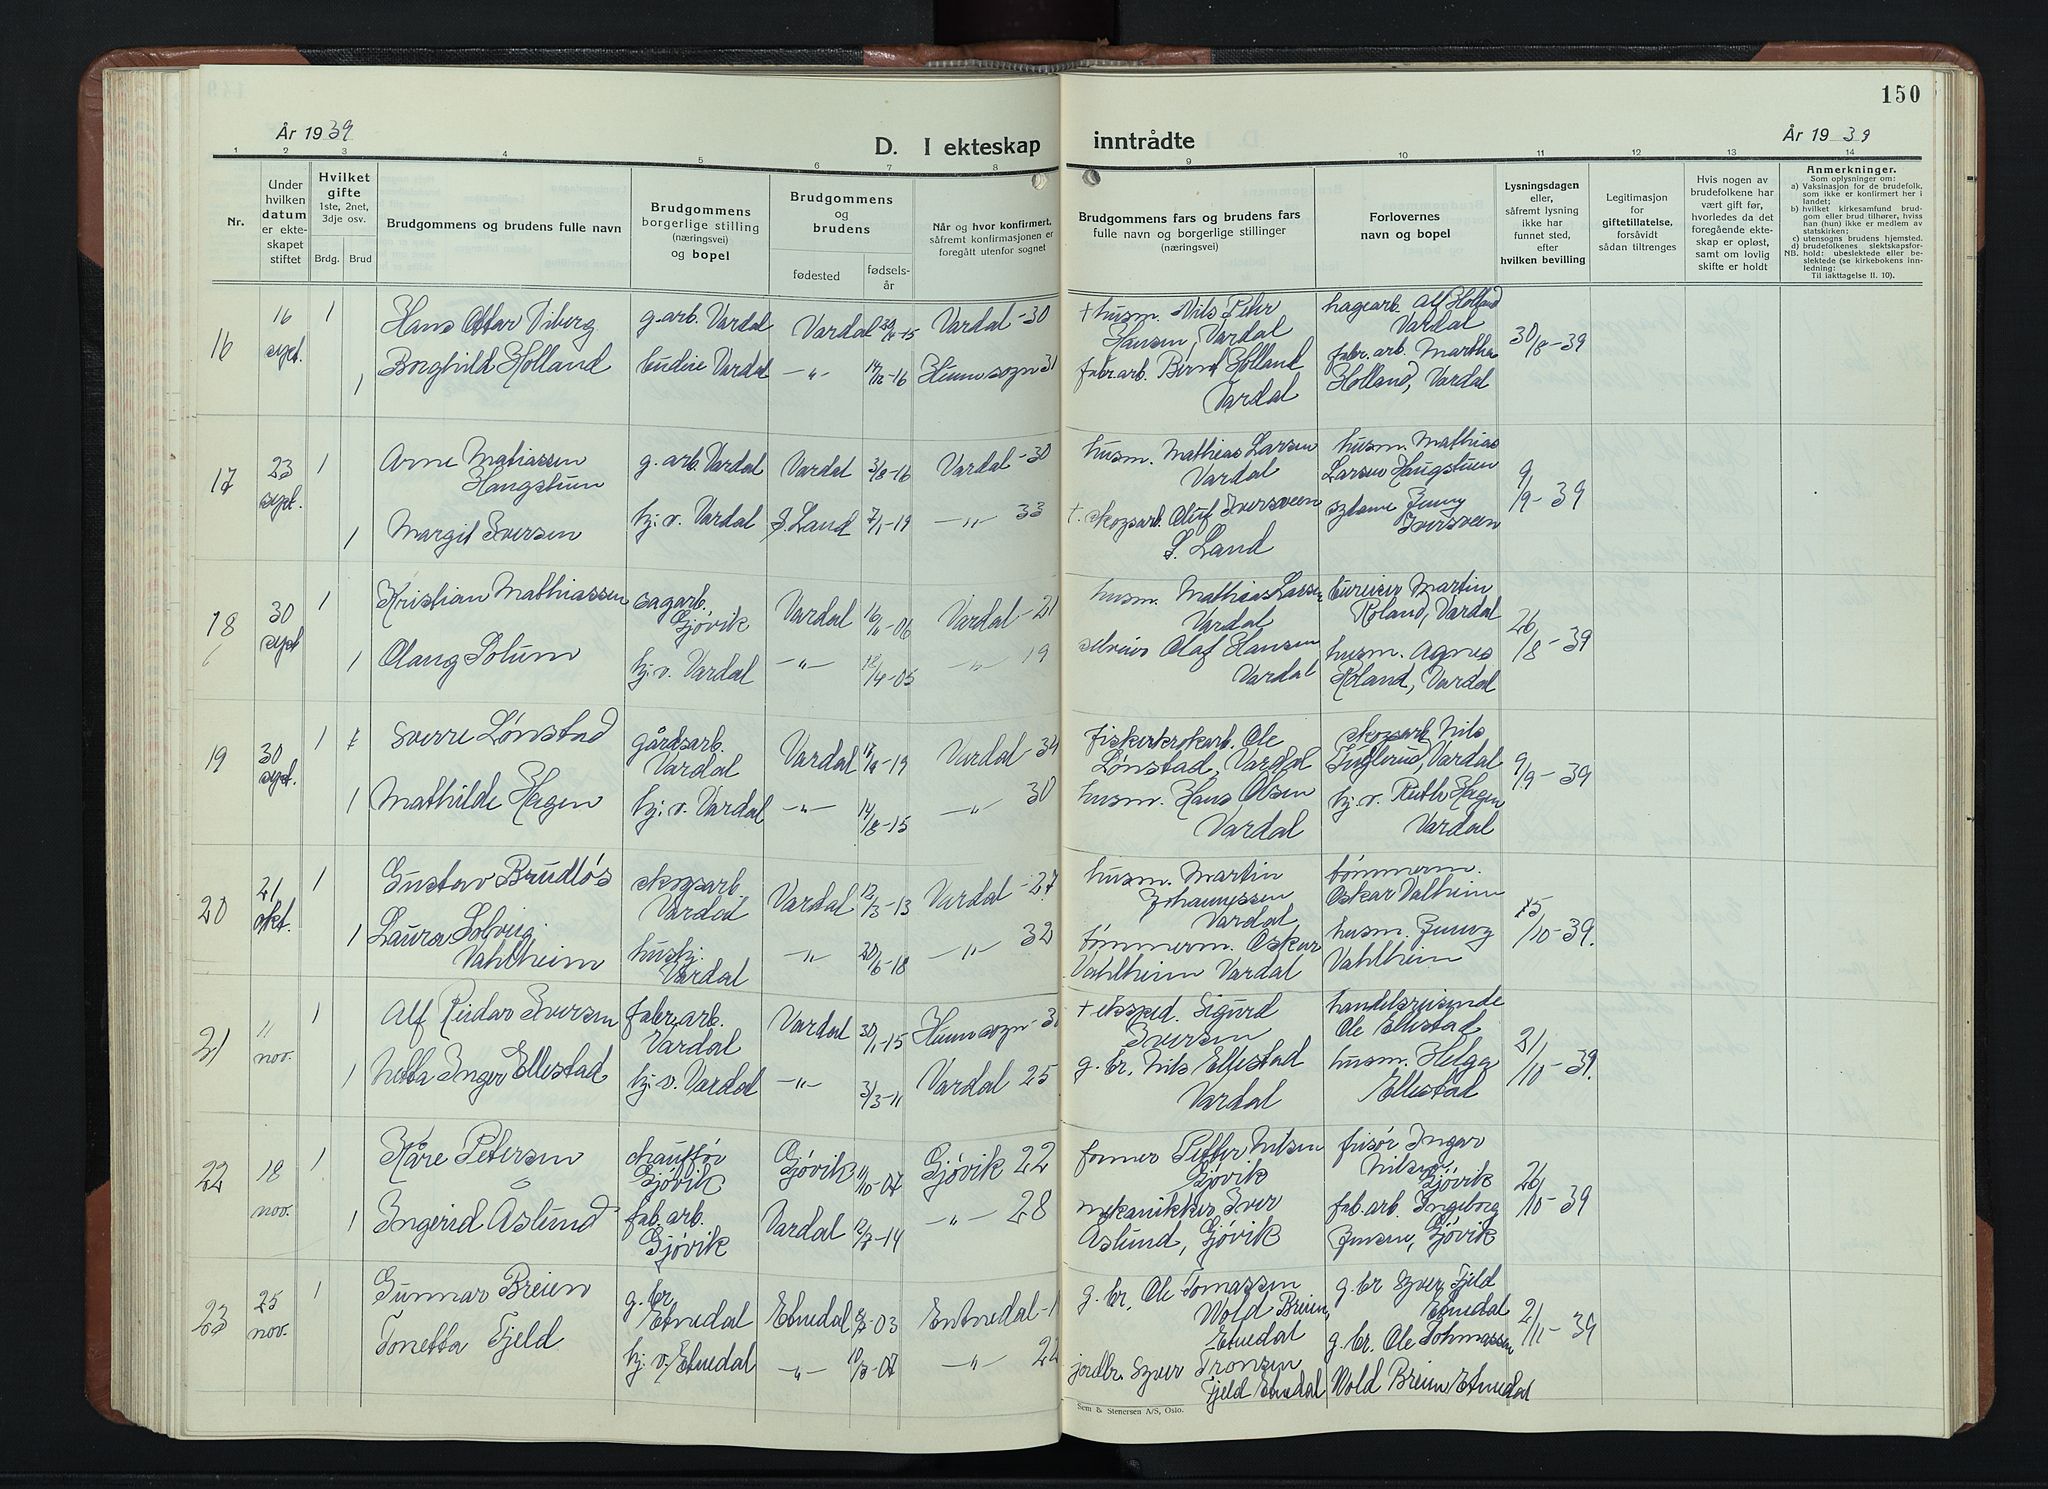 150
År 1939
D. I ekteskap inntrådte
År 1939
1 2 3 4 5 6 7 8 9 10 11 12 13 14
Nr.
Under hvilken datum er ekteskapet stiftet
Hvilket gifte
1ste, 2net, 3dje osv.
Brdg. Brud
Brudgommens og brudens fulle navn
Brudgommens borgerlige stilling (næringsvei) og bopel
Brudgommens og brudens
fødested
fødselsår
Når og hvor konfirmert, såfremt konfirmasjonen er foregått utenfor sognet
Brudgommens fars og brudens fars fulle navn og borgerlige stillinger (næringsvei)
Forlovernes navn og bopel
Lysningsdagen eller, såfremt lysning ikke har funnet sted, efter hvilken bevilling
Legitimasjon for giftetillatelse, forsåvidt sådan tiltrenges
Hvis nogen av brudefolkene har vært gift før, hvorledes da det foregående ekteskap er opløst, samt om lovlig skifte er holdt
Anmerkninger.
Som oplysninger om:
a) Vaksinasjon for de brudefolk, som ikke er konfirmert her i landet;
b) hvilket kirkesamfund brudgom eller brud tilhører, hviss han (hun) ikke er medlem av statskirken;
c) utensogns brudens hjemsted.
d) brudefolkenes slektskapsforhold: ubeslektede eller beslektede (se kirkebokens innledning:
NB.
Til iakttagelse II. 10).
16 16 sept. 1 Hans Ottar Viberg g.arb. Vardal Vardal 30/4-15 Vardal -30 + husm. Nils Pehr Hansen, Vardal hagearb. Alf Holland Vardal 30/8-39
1 Borghild Holland Vardal -"- -16 Hunn sogn 31 fabr.arb. Bernt Holland Vardal fabr.arb. Martha Holland, Vardal
17 23 sept. 1 Arne Mathiassen Haugstuen g.arb. Vardal Vardal 3/8-16 Vardal -30 husm. Mathias Larsen Vardal husm. Mathias Larsen Haugstuen 9/9-39
1 Margit Iversen hj.v. Vardal S. Land 7/1-19 -"- 33 +. skogsarb. Oluf Iversveen S. Land Jenny Iversveen
18 30 sept 1 Kristian Mathiassen sagarb. Gjøvik Vardal 16/11-06 Vardal -21 husm. Mathias Larsen Vardal Martin Roland, Vardal 26/8-39
1 Olaug Solum hj.v. Vardal -"- 18/4-05 -"- 19 Olaf Hansen Vardal husm. Agnes Roland, Vardal
19 30 sept. 1 Sverre Lønstad gårdsarb. Vardal Vardal -19 Vardal -34 fiskerkrokarb. Ole Lønstad, Vardal skogsarb. Nils Fuglerud, Vardal 9/9-39
1 Mathilde Hagen hj.v. Vardal -"- 14/8-15 -"- 30 husm. Hans Olsen Vardal hj.v. Ruth Hagen Vardal
20 21 okt. 1 Gustav Brudløs skogsarb. Vardal Vardal 12/3-13 Vardal -27 husm. Martin Johannessen Vardal tømmerm. Oskar Valheim /10-39.
1 Laura Solveig Vahlheim hushj. Vardal -"- 20/6-18 -"- 32 tømmerm. Oskar Vahlheim Vardal husm. Jenny Vahlheim
21 11 nov. 1 Alf Reidar Iversen fabr.arb. Vardal Vardal 30/1-15 Hunn sogn -30 + eksped. Sigurd Iversen handelsreisende Ole Ellestad 21/10-39.
1 Inger Ellestad hj.v. Vardal -"- 3/3-11 Vardal 25 g.br. Nils Ellestad Vardal husm. Helga Ellestad
22 18 nov. 1 Kåre Petersen chauffør Gjøvik Gjøvik 11/10-07 Gjøvik 22 former Petter Nilsen Gjøvik frisør Ingar Nilsen Gjøvik 26/10-39
1 Ingerid Åslund fab.arb. Gjøvik Vardal 12/7-14 -"- 28 mekanikker Iver Åslund, Gjøvik fab.arb. Ingeborg Jensen, Gjøvik
23 25 nov. 1 Gunnar Breien g.br. Etnedal Etnedal -03 Entnedal -1 g.br. Ole Tomassen Wold Breien, Etnedal g.br Syver Fjeld Etnedal 2/11-39
Tonetta Fjeld hj.v. Etnedal -"- 10/3-07 -"- 22 jordbr. Syver Tronsen Fjeld Etnedal g.br. Ole Tohmassen Wold Breien Etnedal
Sem & Stenersen A/S, Oslo.